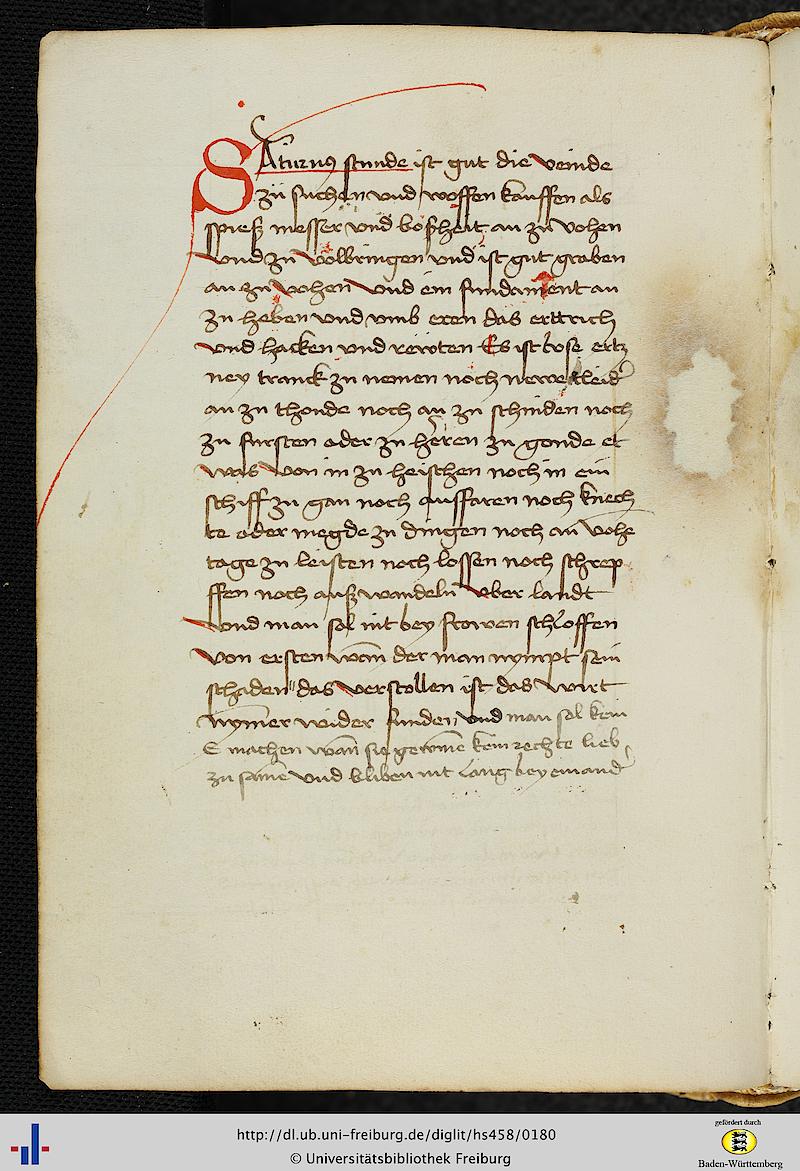 SAturnus stunde ist gut die veinde
zü suchen vnd woffen kauffen als
spieß messer vnd boßheit an zu vohen
vnd zu volbringen vnd ist gut graben
an zu vohen vnd ein fundament an
zu heben vnd vmb eren das erttrich
vnd hacken vnd reroten Es ist bose ertz
ney tranck zu nemen noch newe kleid
an zu thonde noch an zu schinden noch
zu fursten oder zu heren zu gonde et
was von in zu heischen noch in ein
schiff zu gan noch ausffaren noch knech
te oder megde zu dingen noch an vohe
tage zu leisten noch lossen noch schrep
ffen noch auß wandeln vber landt
vnd man sol nit bey frowen schloffen
von ersten wan der man nympt sein
schaden das verstollen ist das wirt
nymer wider funden vnd man sol kein
E machen wan sie gewine kein rechte lieb
zu samen vnd bliben nit lang bey einand
http://dl.ub.uni-freiburg.de/diglit/hs458/0180
© Universitätsbibliothek Freiburg
gefördert durch
Baden-Württemberg